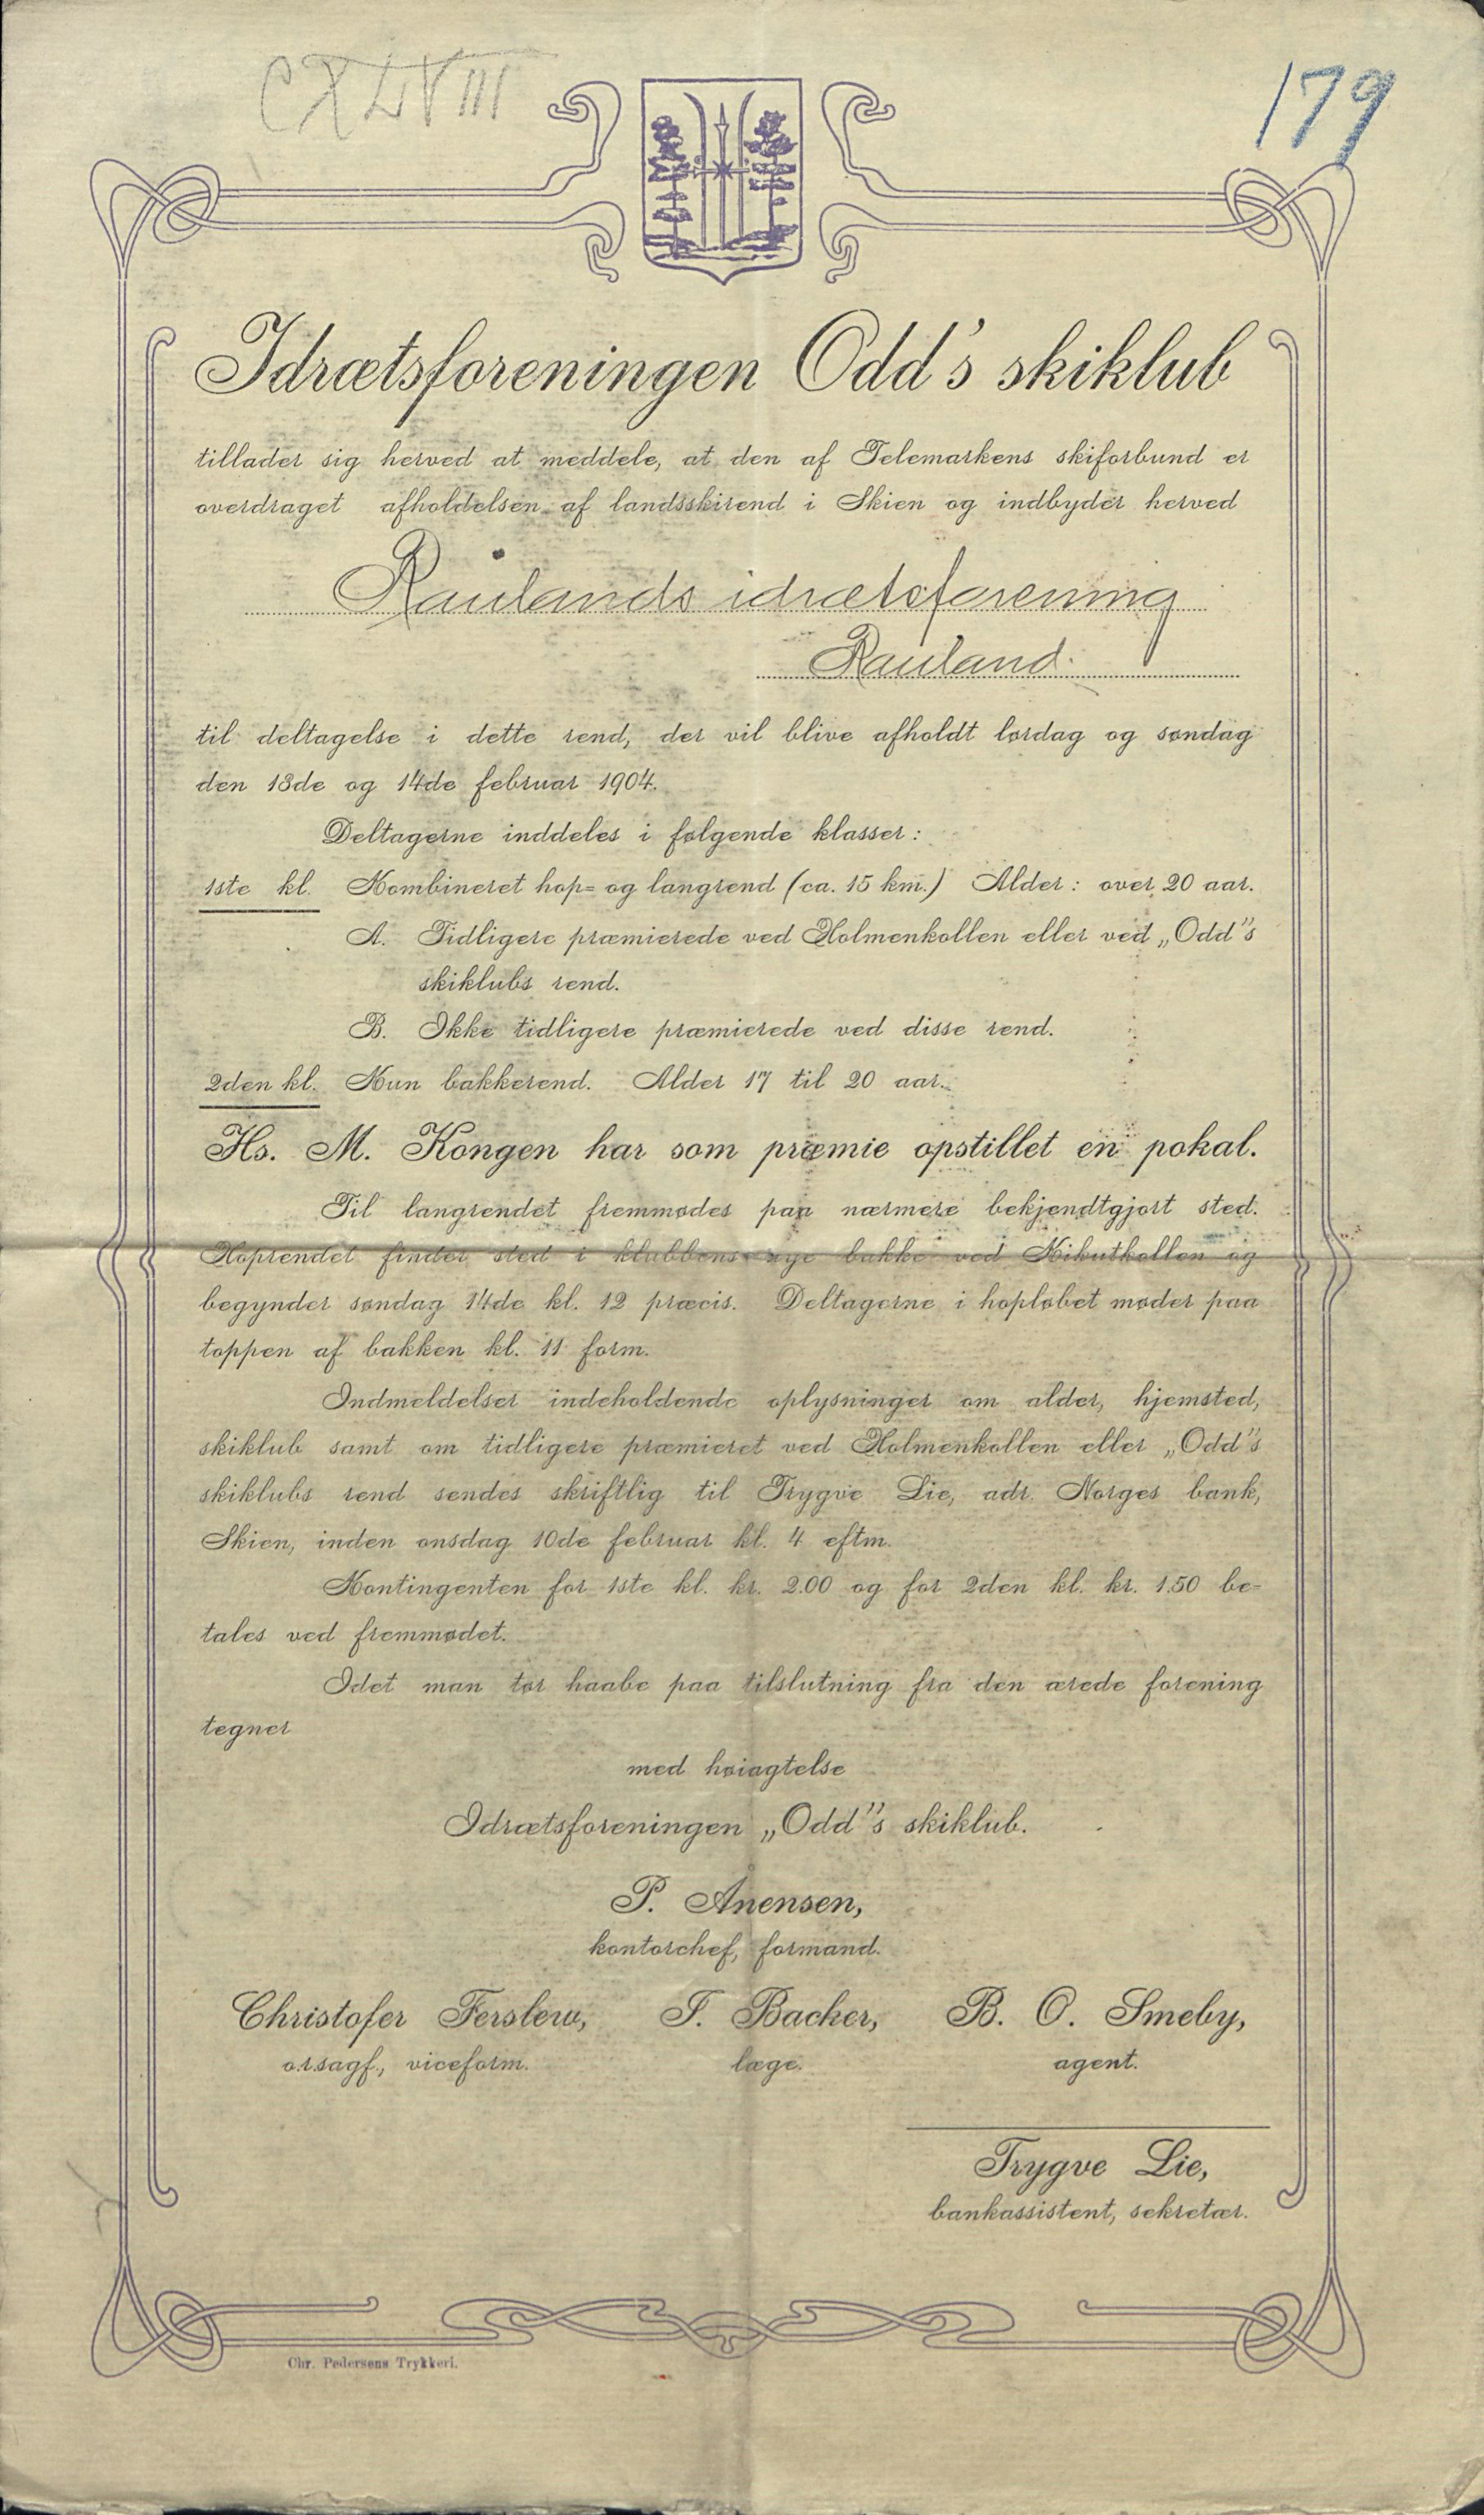 CXLVIII
179
Idrætsforeningen Odd's skiklub
tillader sig herved at meddele, at den af Telemarkens skiforbund er
overdraget afholdelsen af landsskirend i Skien og indbyder herved
Raulands idrætsforening
Rauland.
til deltagelse i dette rend, der vil blive afholdt lørdag og søndag
den 13de og 14de februar 1904.
Deltagerne inddeles i følgende klasser:
1ste kl. Kombineret hop= og langrend (ca. 15 km.) Alder: over 20 aar.
A. Tidligere præmierede ved Holmenkollen eller ved „Odd"s
skiklubs rend.
B. Ikke tidligere præmierede ved disse rend.
2den kl. Kun bakkerend. Alder 17 til 20 aar.
Hs. M. Kongen har som præmie opstillet en pokal.
Til langrendet fremmødes paa nærmere bekjendtgjort sted.
Hoprendet finder sted i klubbens nye bakke ved Kikutkollen og
begynder søndag 14de kl. 12 præcis. Deltagerne i hopløbet møder paa
toppen af bakken kl. 11 form.
Indmeldelser indeholdende oplysninger om alder, hjemsted,
skiklub samt om tidligere præmieret ved Holmenkollen eller „Odd"s
skiklubs rend sendes skriftlig til Trygve Lie, adr. Norges bank,
Skien, inden onsdag 10de februar kl. 4 eftm.
Kontingenten for 1ste kl. kr. 2.00 og for 2den kl. kr. 1.50 be=
tales ved fremmødet.
Idet man tør haabe paa tilslutning fra den ærede forening
tegner
med høiagtelse
Idrætsforeningen „Odd"s skiklub.
P. Ånensen,
kontorchef, formand.
Christofer Ferslew, F. Backer, B. O. Smeby,
o.r.sagf., viceform. læge. agent.
Trygve Lie,
bankassistent, sekretær.
Chr. Pedersens Trykkeri.